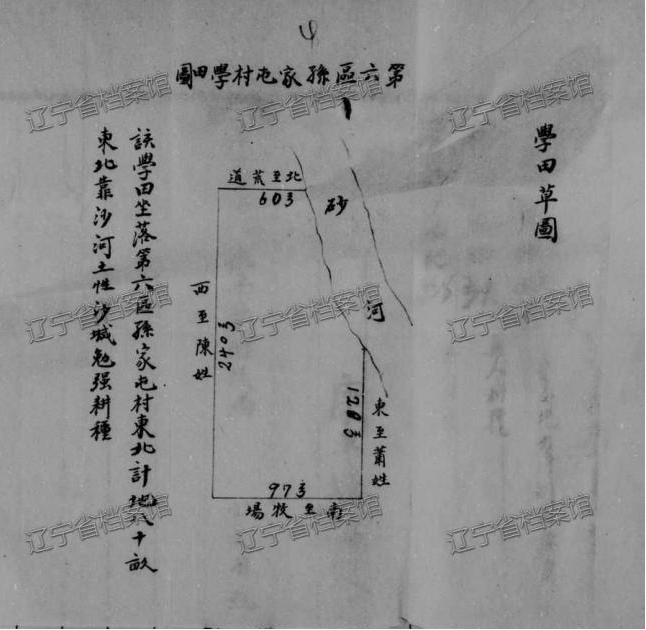 4
第六區孫家屯村學田圖
學田草圖
砂河
北至荒道
603
西至陳姓
2403
東至蕭姓
1203
973
南至牧場
該學田坐落第六區孫家屯村東北計地八十畝
東北靠沙河土性沙堿勉强耕種
辽宁省档案馆
辽宁省档案馆
辽宁省档案馆
辽宁省档案馆
辽宁省档案馆
辽宁省档案馆
辽宁省档案馆
辽宁省档案馆
辽宁省档案馆